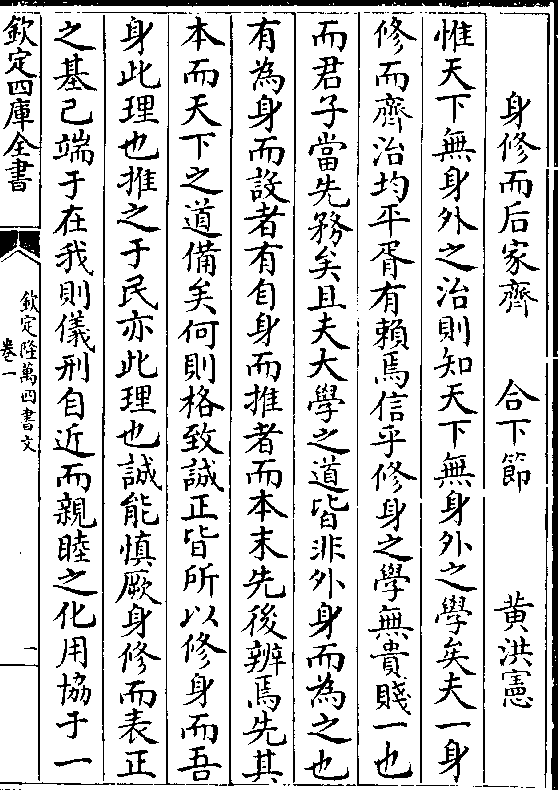 身修而后家齊　合下節　黄洪憲
惟天下無身外之治則知天下無身外之學矣夫一身
修而齊治均平胥有賴焉信乎修身之學無貴賤一也
而君子當先務矣且夫大學之道皆非外身而為之也
有為身而設者有自身而推者而本末先後辨焉先其
本而天下之道備矣何則格致誠正皆所以修身而吾
身此理也推之于民亦此理也誠能慎厥身修而表正
之基已端于在我則儀刑自近而親睦之化用協于一
欽定四庫全書
欽定隆萬四書文
卷一
一